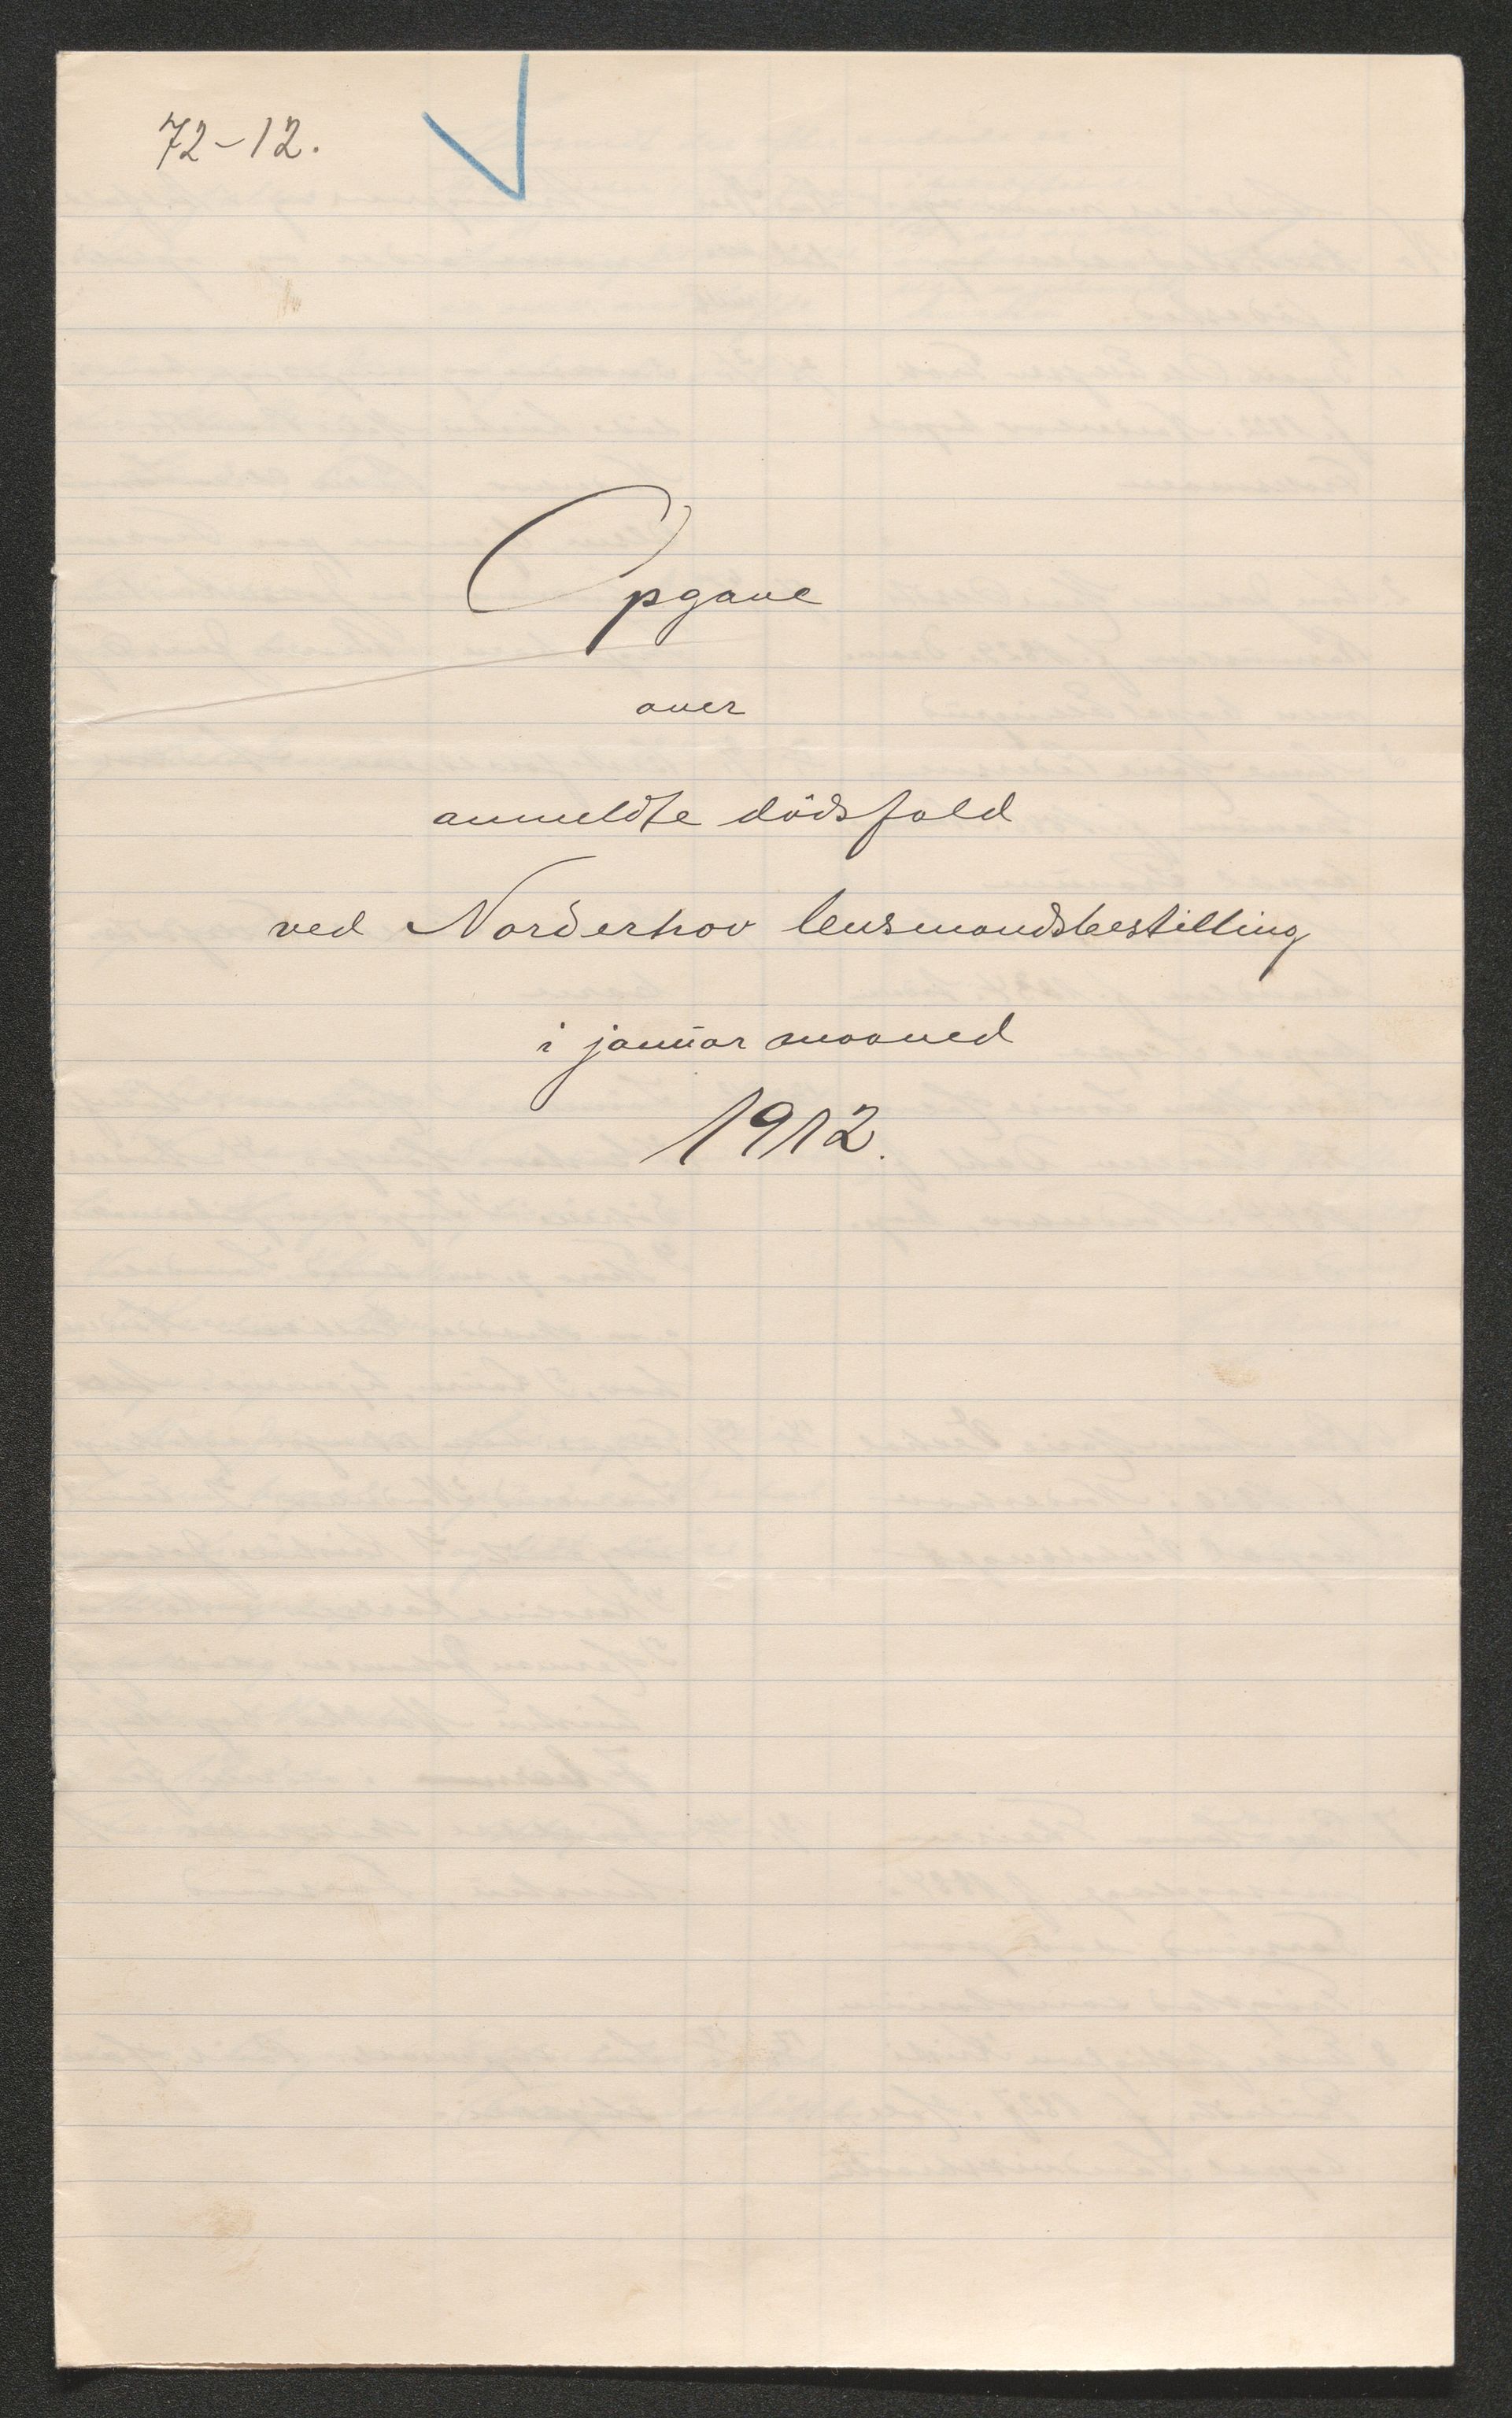 72-12.
Opgave
over
anmeldte dödsfald
ved Norderhov lensmandsbestilling
i januar maaned
1912.